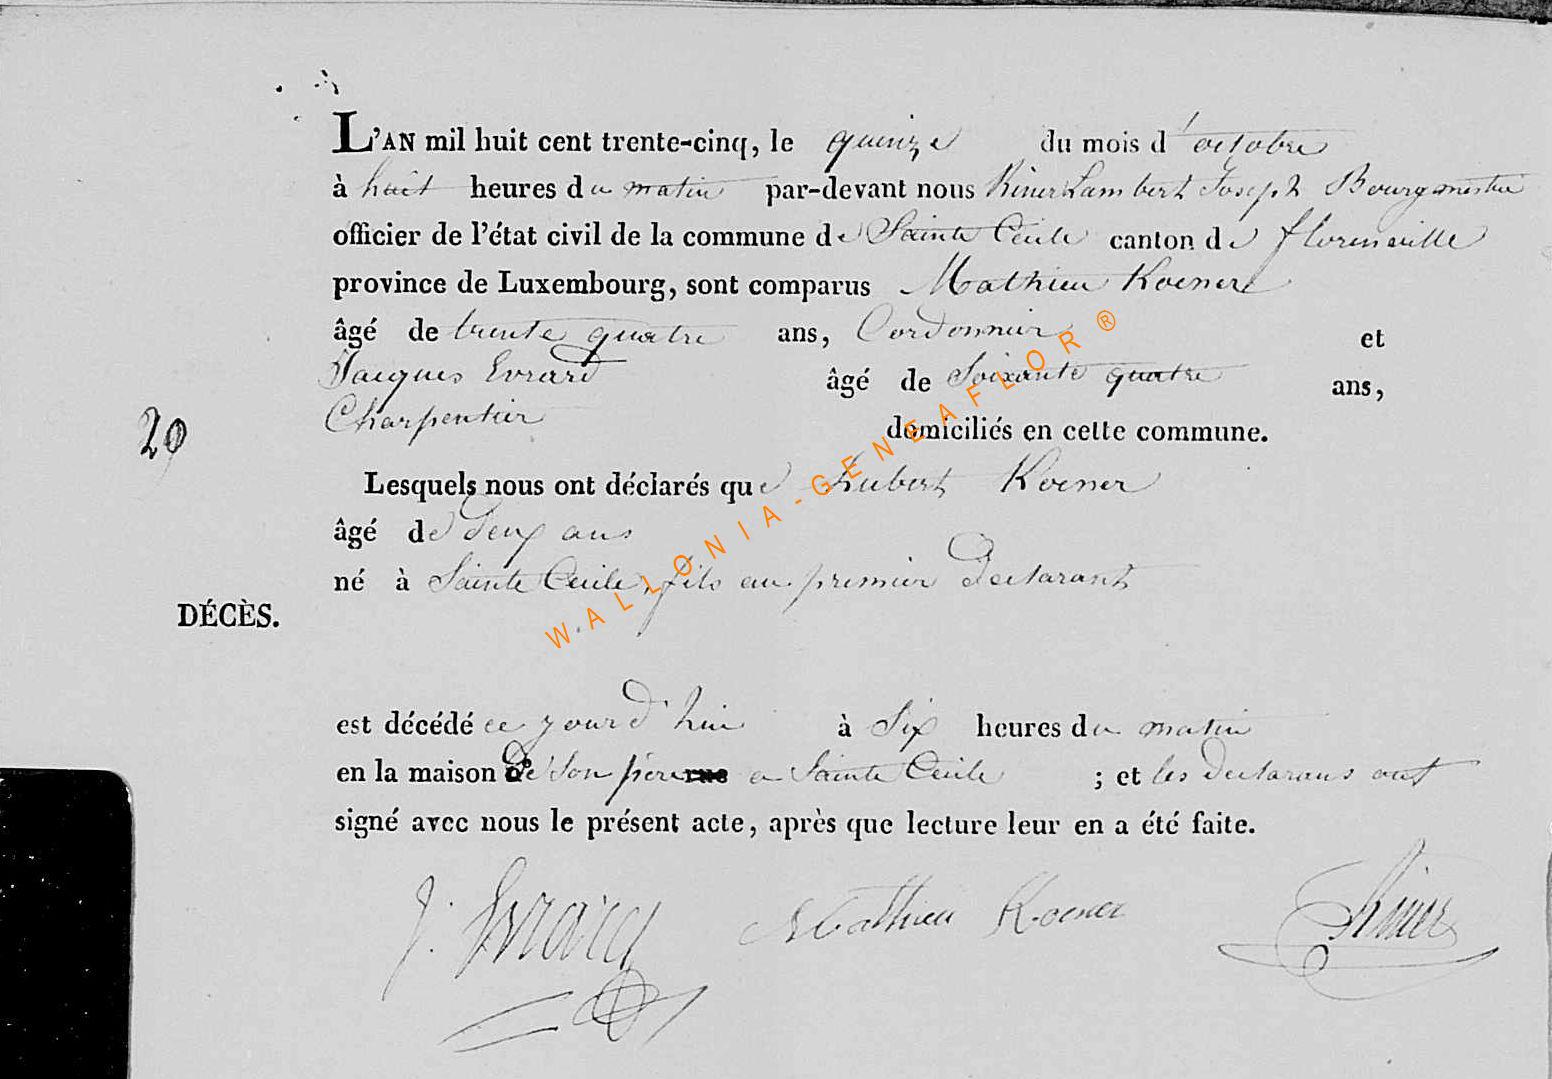 L'AN mil huit cent trente-cinq, le quinze du mois d'octobre
à huit heures du matin par-devant nous Riner Lambert Joseph Bourgmestre
officier de l'état civil de la commune de Sainte Cécile canton de florenville
province de Luxembourg, sont comparus Mathieu Koener
âgé de trente quatre ans, Cordonnier et
Jacques Evrard âgé de Soixante quatre ans,
Charpentier domiciliés en cette commune.
20
Lesquels nous ont déclarés que hubert Koener
âgé de deux ans
né à Sainte Cecile, fils au premier declarant
DÉCÈS.
est décédé ce jourd'hui à Six heures du matin
en la maison de Son père rue a Sainte Cecile ; et les declarans ont
signé avec nous le présent acte, après que lecture leur en a été faite.
J. Evrard Mathieu Koener Riner
WALLONIA-GENEAFLOR ®